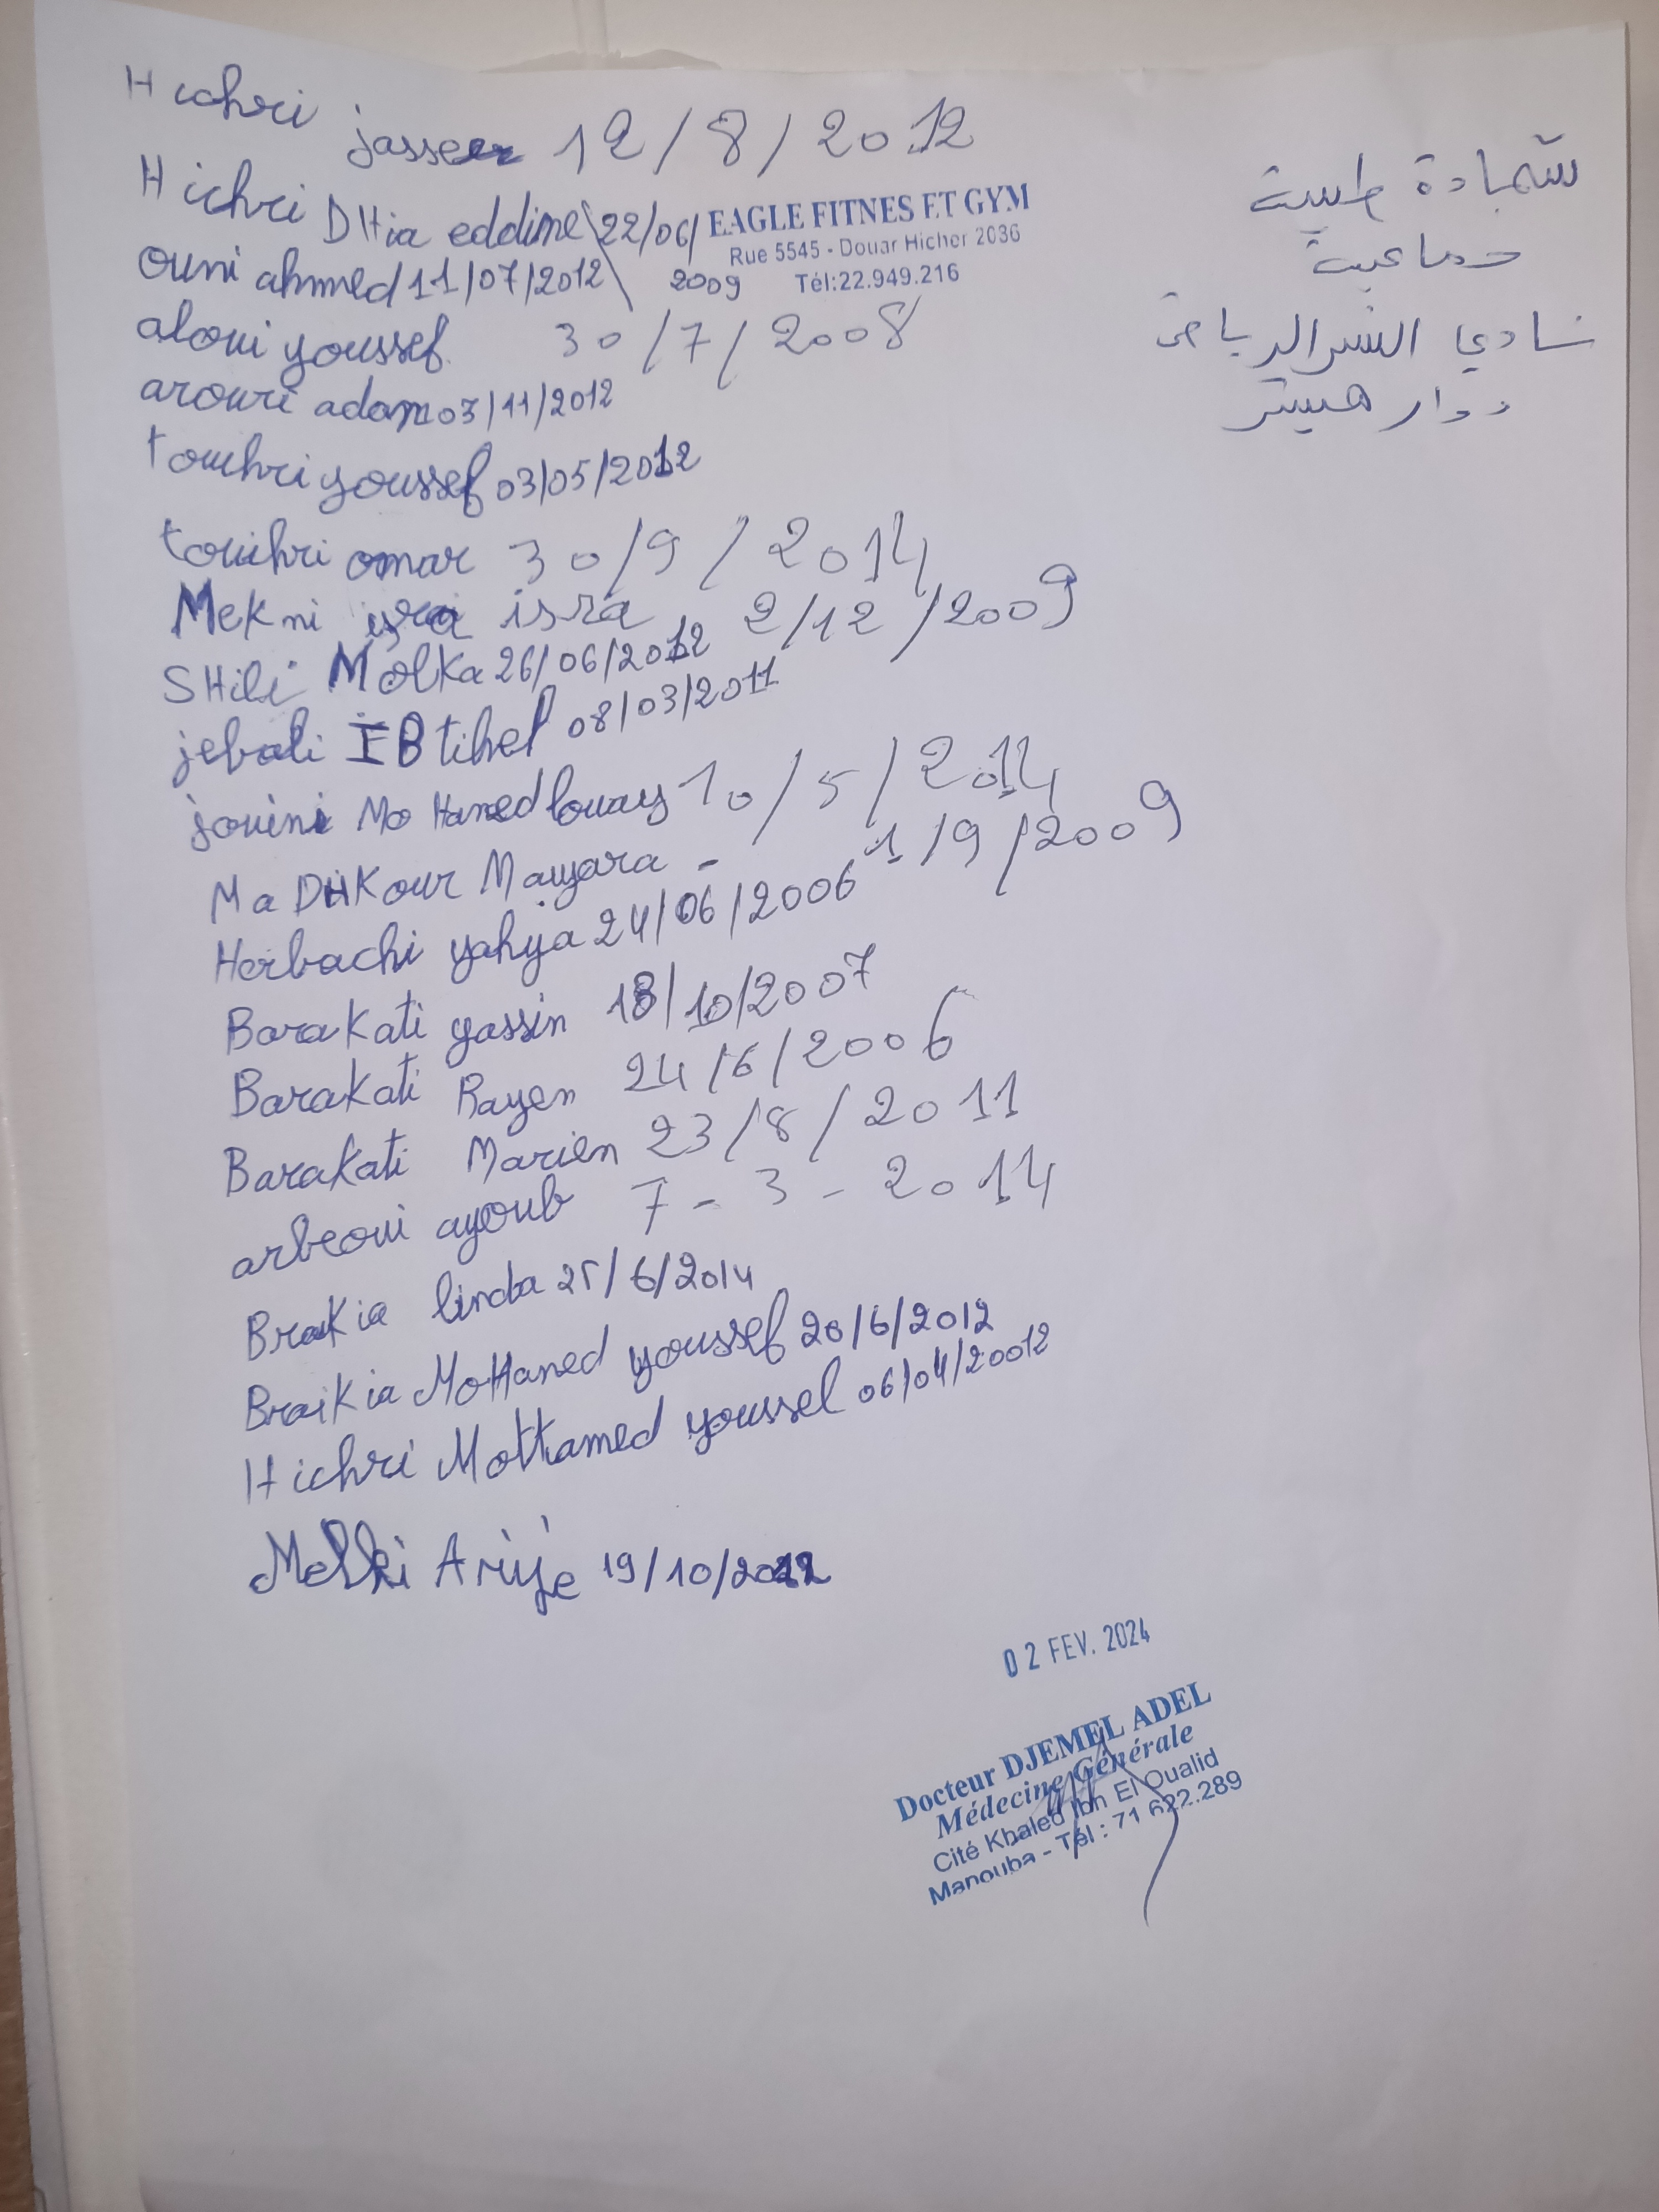 Hichri jasser 12/8/2012
Hichri DHia eddine 22/06/2009
EAGLE FITNES ET GYM
Rue 5545 - Douar Hicher 2036
Tél:22.949.216
شهادة طبية
جماعية
نادي النسر الرياضي
دوار هيشر
ouni ahmed 11/07/2012
aloui youssef 30/7/2008
arouri adam 03/11/2012
touihri youssef 03/05/2012
touihri omar 30/9/2014
Mekni isra 2/12/2009
SHili Molka 26/06/2012
jebali IBtihel 08/03/2011
jouini MoHamed louay 10/5/2014
MaDHKour Mayara - 1/9/2009
Herbachi yahya 24/06/2006
BaraKati yassin 18/10/2007
BaraKati Rayen 24/6/2006
BaraKati Mariem 23/8/2011
arbeoui ayoub 7-3-2014
BraiKia linda 25/6/2014
BraiKia MoHamed youssef 20/6/2012
Hichri MoHamed youssef 06/04/20012
Melki Arije 19/10/2012
02 FEV. 2024
Docteur DJEMEL ADEL
Médecine Générale
Cité Khaled Ibn El Oualid
Manouba - Tél : 71 622.289